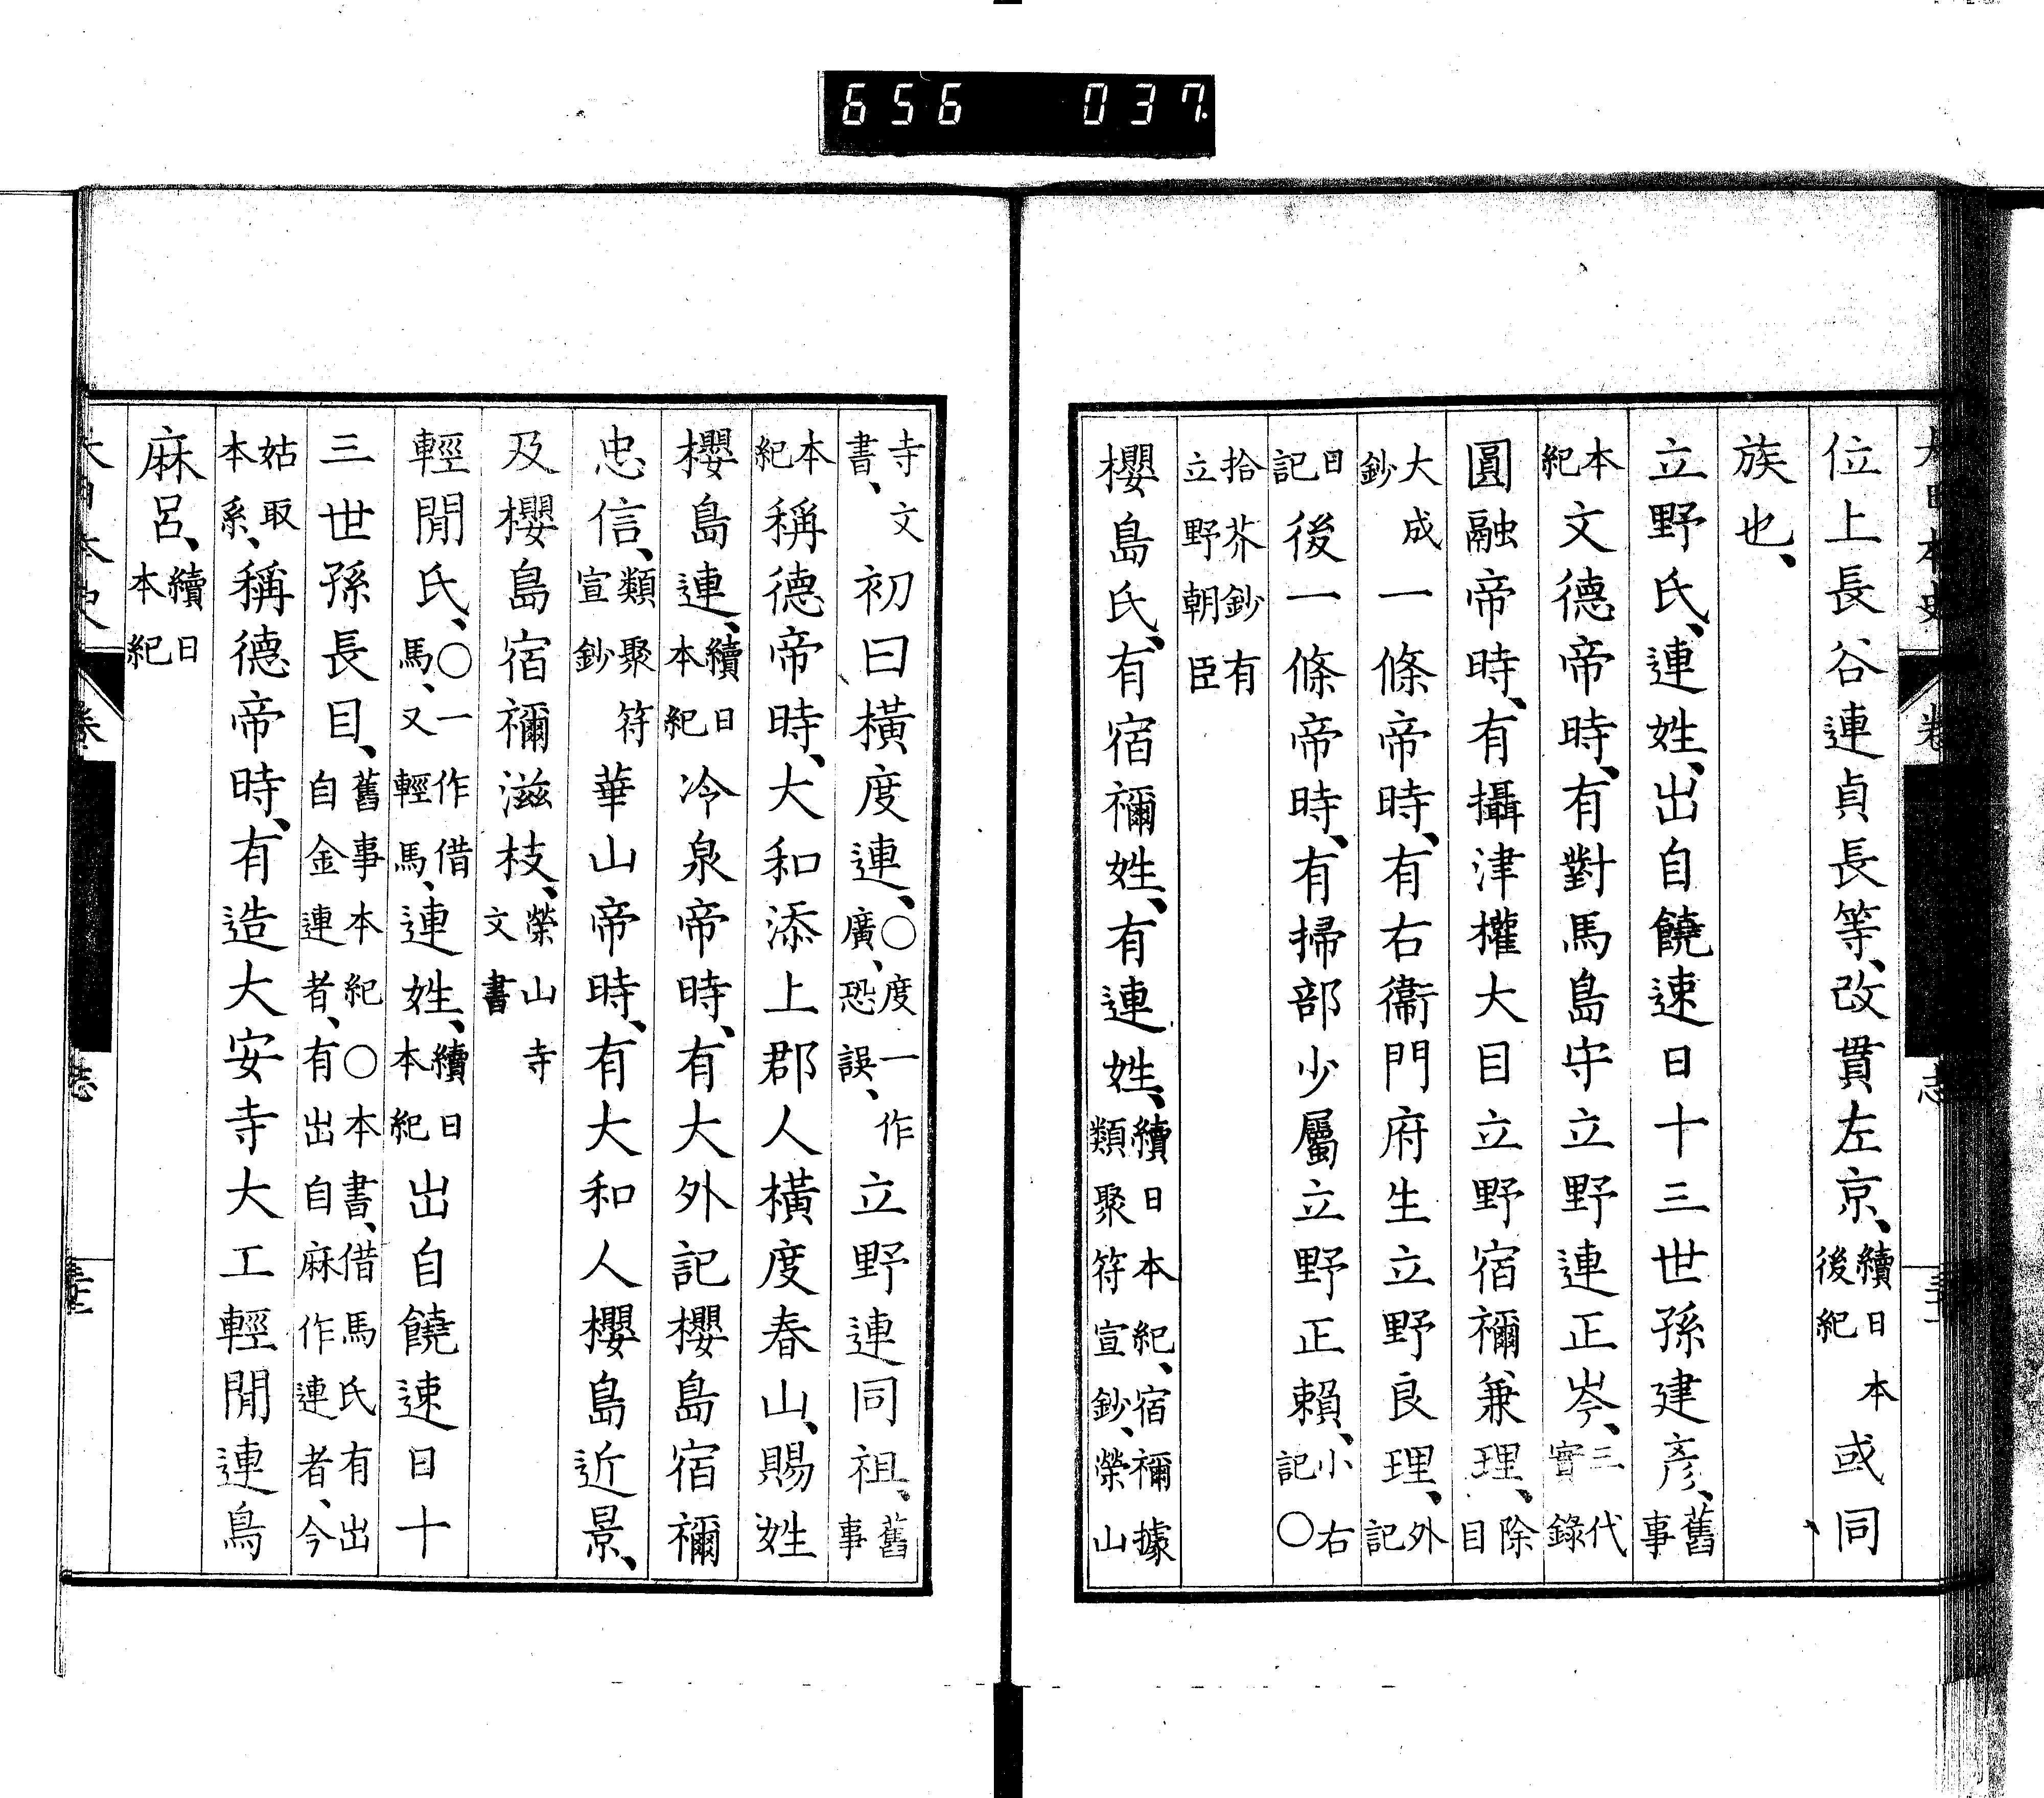 656 037.
位上長谷連貞長等、改貫左京、續日本後紀或同
族也、
立野氏、連姓、出自饒速日十三世孫建彥、舊事
本紀文德帝時、有對馬島守立野連正岑、三代實錄
圓融帝時、有攝津權大目立野宿禰兼理、除目
大成鈔一條帝時、有右衞門府生立野良理、外記
日記後一條帝時、有掃部少屬立野正賴、小右記〇
拾芥鈔有立野朝臣
櫻島氏、有宿禰姓、有連姓、續日本紀、宿禰據類聚符宣鈔、榮山
寺文書、初曰橫度連、〇度一作廣、恐誤、立野連同祖、舊事
本紀稱德帝時、大和添上郡人橫度春山、賜姓
櫻島連、續日本紀冷泉帝時、有大外記櫻島宿禰
忠信、類聚符宣鈔華山帝時、有大和人櫻島近景、
及櫻島宿禰滋枝、榮山寺文書
輕閒氏、〇一作借馬、又輕馬、連姓、續日本紀出自饒速日十
三世孫長目、舊事本紀〇本書、借馬氏有出自金連者、有出自麻作連者、今
姑取本系、稱德帝時、有造大安寺大工輕閒連鳥
麻呂、續日本紀